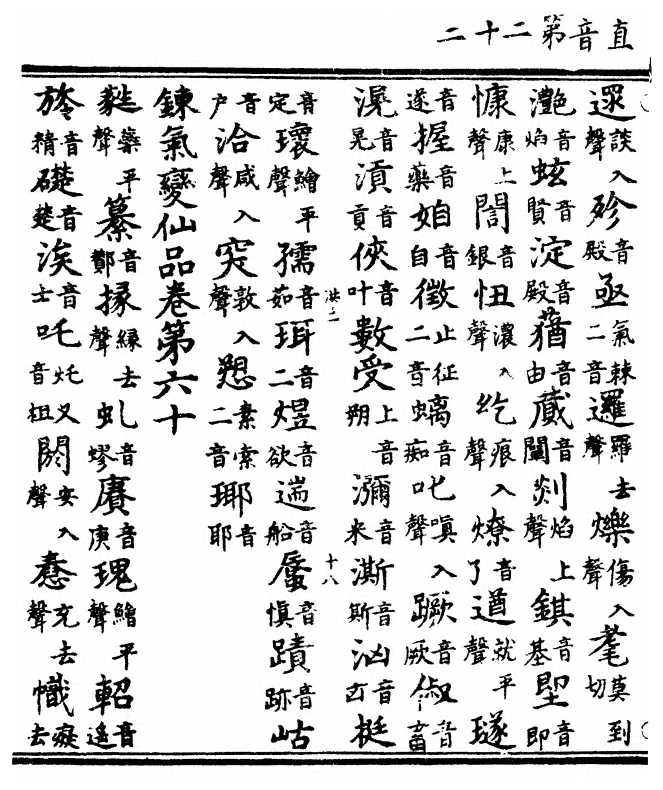 直音第二十二
遝談入聲殄音殿亟氣棘二音邏羅去聲爍傷入聲耄莫到切
灔音焰蚿音賢淀音殿蕕音由蕆音闡剡焰上聲錤音基堲音即
慷康上聲誾音銀忸濃入聲紇痕入聲燎音了遒就平聲璲
音遂握音藥音自徵止征二音螭音痴叱嗔入聲蹶音厥俶音畜
滉音晃湏音貢俠音叶數受上音朔瀰音米澌音斯洶音凶梃
洪二 十八
音定瓌繪平聲孺音茹珥音二煜音欲遄音船蜃音慎蹟音跡岵
音户洽咸入聲突敦入聲愬素索二音瑘音耶
鍊氣變仙品卷第六十
甤藥平聲纂音酇掾緣去聲虬音蟉賡音庚瑰鱠平聲軺音遙
旍音精礎音楚涘音士吒奼又音柤閼安入聲惷充去聲幟癡去